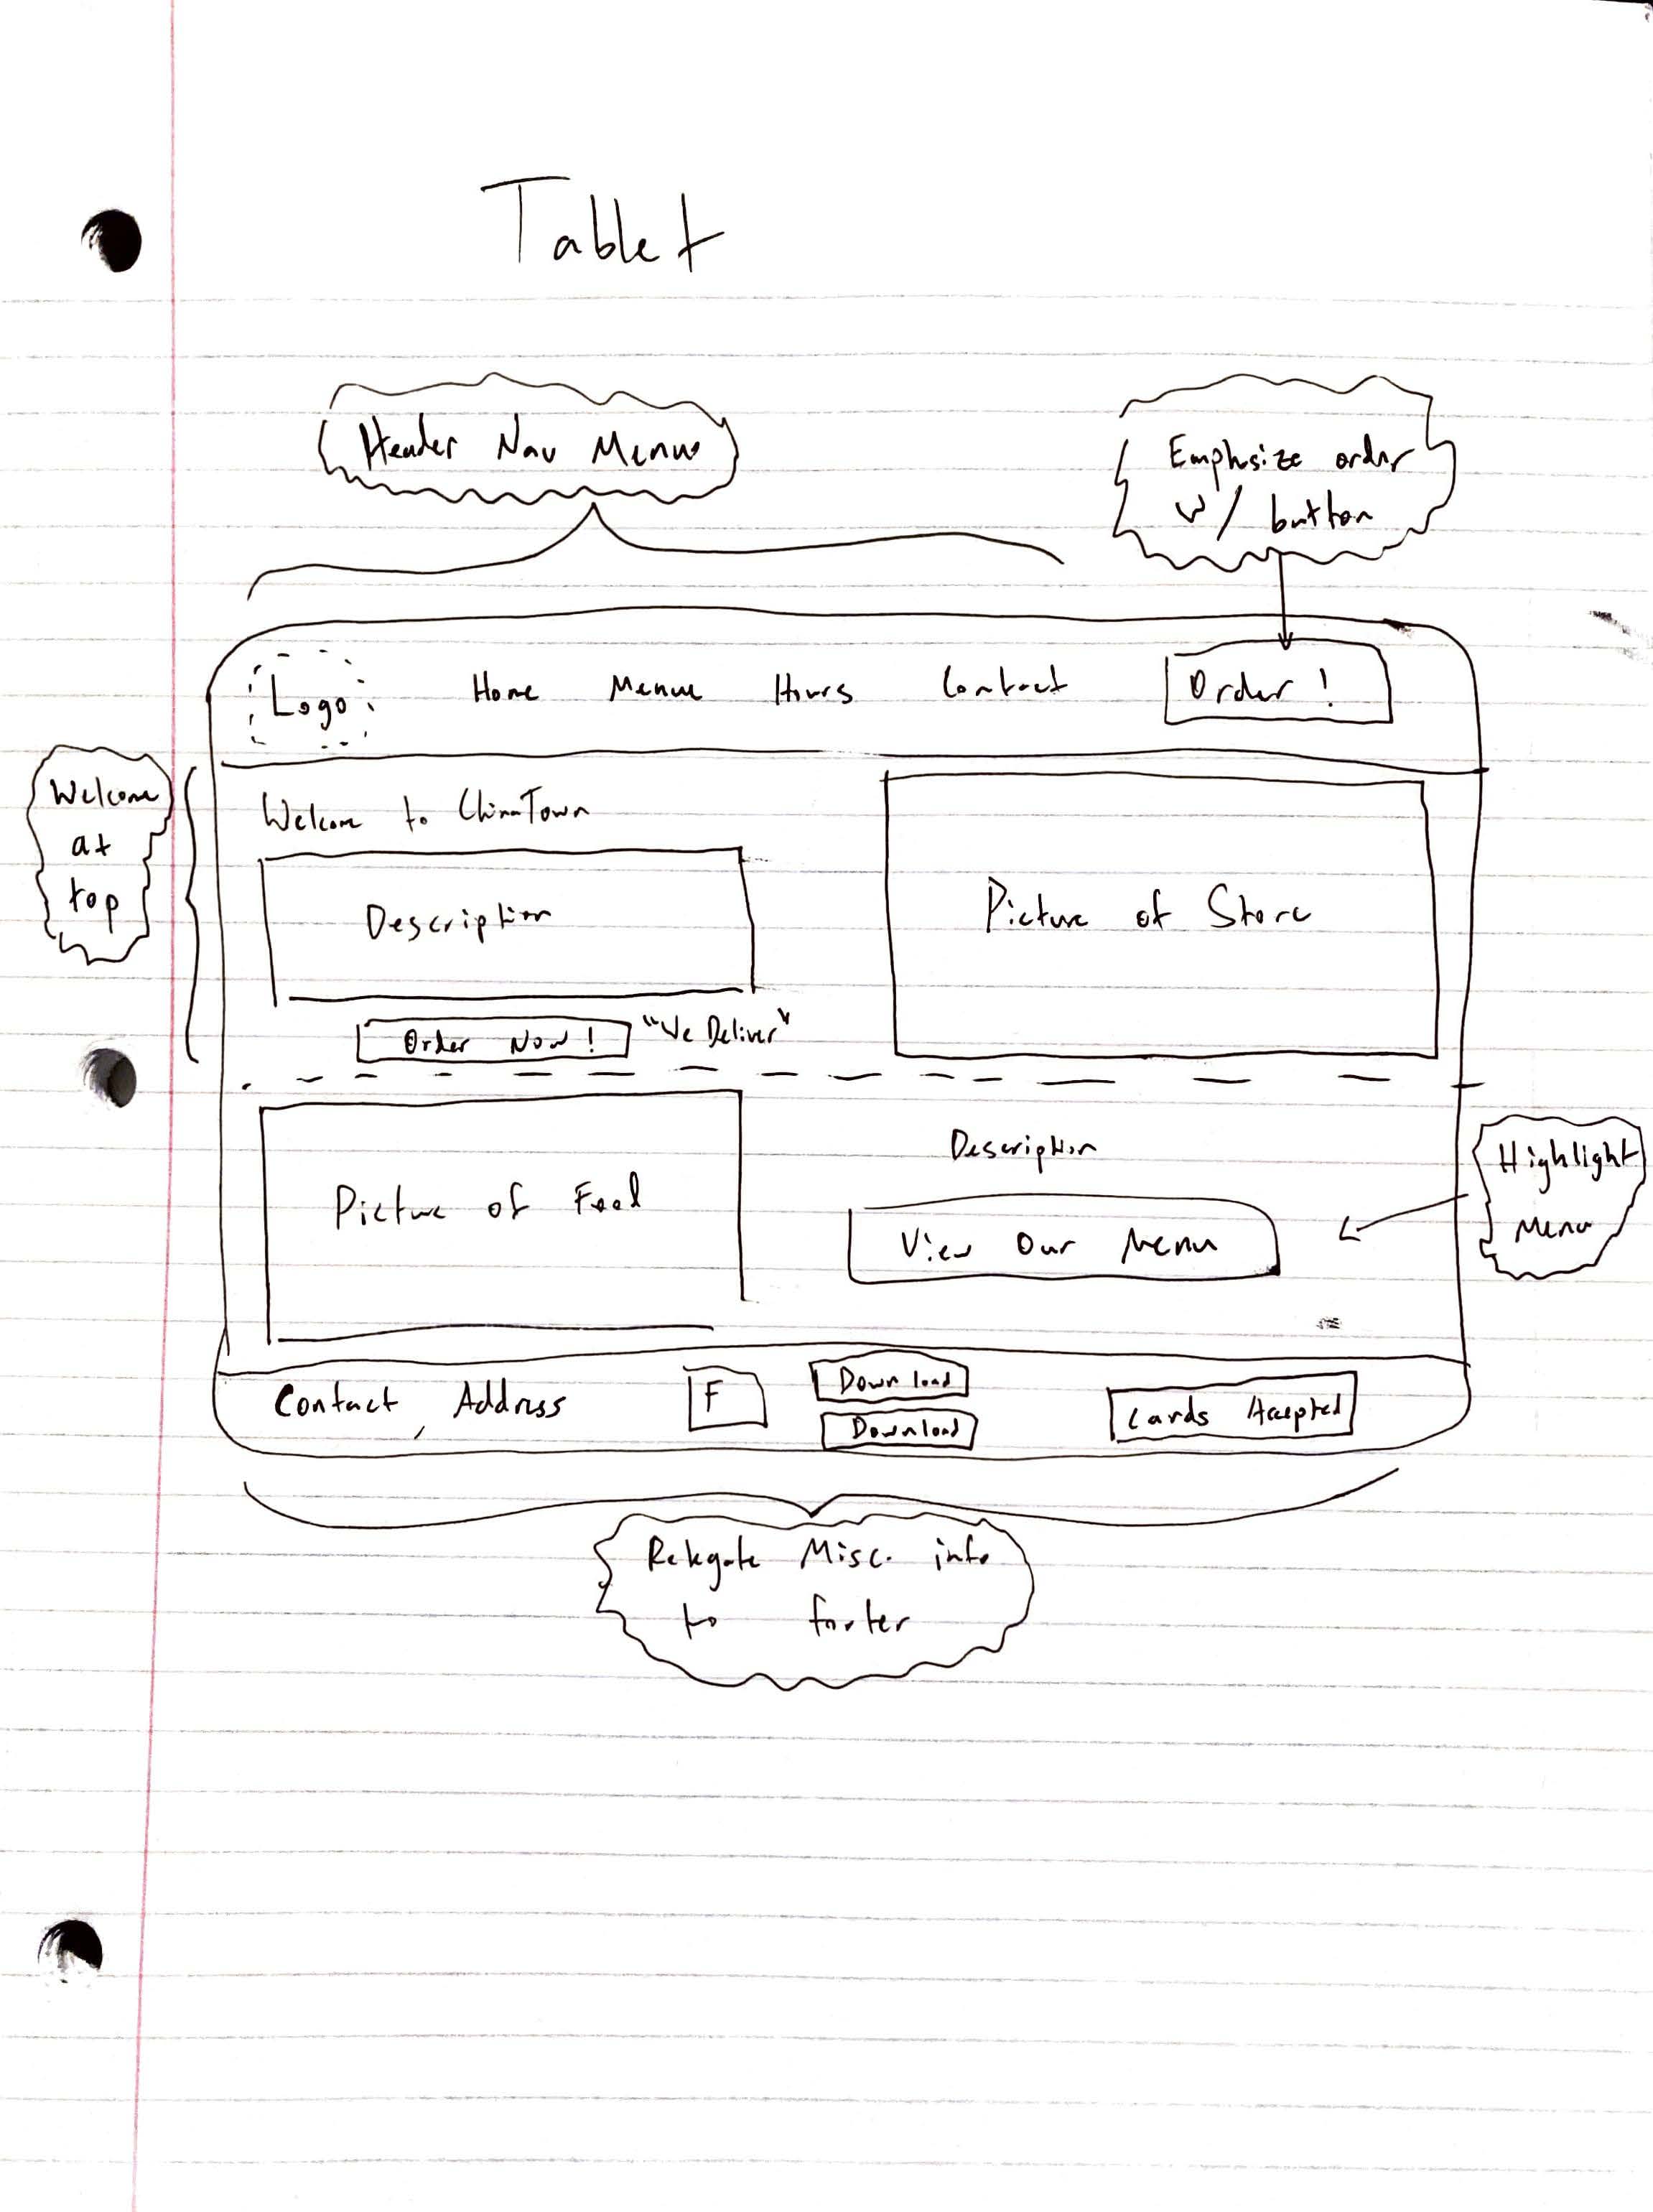 Tablet
Header Nav Menus
Emphsize order
w/ button
Logo Home Menue Hours Contact Order!
Welcome
at
top
Welcome to ChinaTown
Description
Picture of Store
Order Now! "We Deliver"
Picture of Food
Description
View Our Menu
Highlight
Menu
Contact, Address
F
Download
Download
Cards Accepted
Relegate Misc. info
to footer